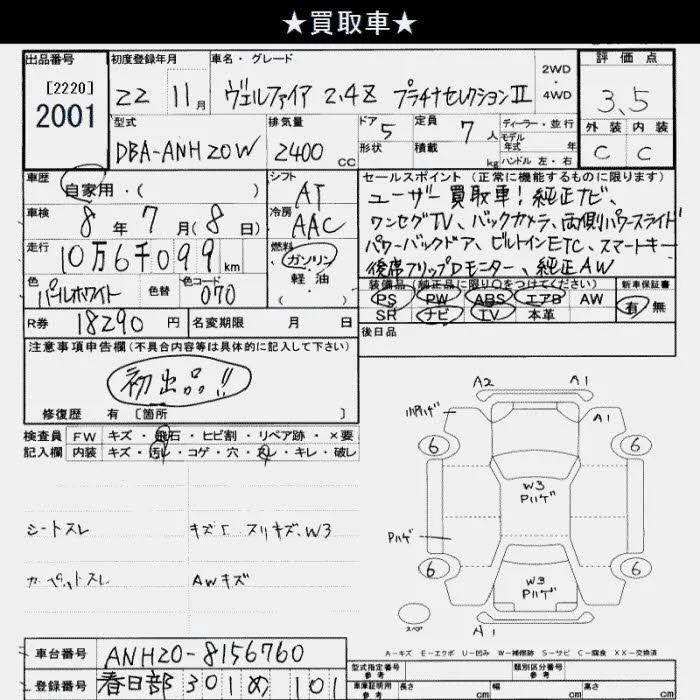 ★買取車★
出品番号 初度登録年月 車名・グレード 2WD 評価点
[2220] 22 11月 ヴェルファイア 2.4Z プラチナセレクションII ・4WD 3.5
2001
型式 排気量 ドア 5 定員 7人 ディーラー・並行 外装 内装
モデル
DBA-ANH20W 2400cc 形状 積載 kg 年式 年 C C
ハンドル 左・右
車歴 自家用・( ) シフト AT セールスポイント (正常に機能するものに限ります)
ユーザー買取車!純正ナビ、
車検 8年7月(8日) 冷房 AAC ワンセグTV、バックカメラ、両側パワースライド
走行 10万6千099km 燃料 ガソリン パワーバックドア、ビルトインETC、スマートキー
軽油 後席フリップDモニター、純正AW
色 パールホワイト 色替 色コード 070 ( ) 装備品(純正品に限り○をつけてください) 新車保証書
PS PW ABS エアB AW 有・無
R券 18290円 名変期限 月 日 SR ナビ TV 本革
注意事項申告欄(不具合内容等は具体的に記入して下さい) 後日品
初出品!!
修復歴 有 [箇所 ]
検査員 FW キズ・飛石・ヒビ割・リペア跡・×要
記入欄 内装 キズ・汚レ・コゲ・穴・スレ・キレ・破レ
A2 A1
A1
6 6
W3
Pハゲ
シートスレ キズ スリキズ、W3
Pハゲ
カーペットスレ AWキズ
6 6
W3
Pハゲ
スペア
A1
A-キズ E-エクボ U-凹み W-補修跡 S-サビ C-腐食 XX-交換済
車台番号 ANH20-8156760 型式指定番号 参考 類別区分番号 参考
登録番号 春日部 301 め 101 車庫証明用 参考 長さ cm 幅 cm 高さ cm